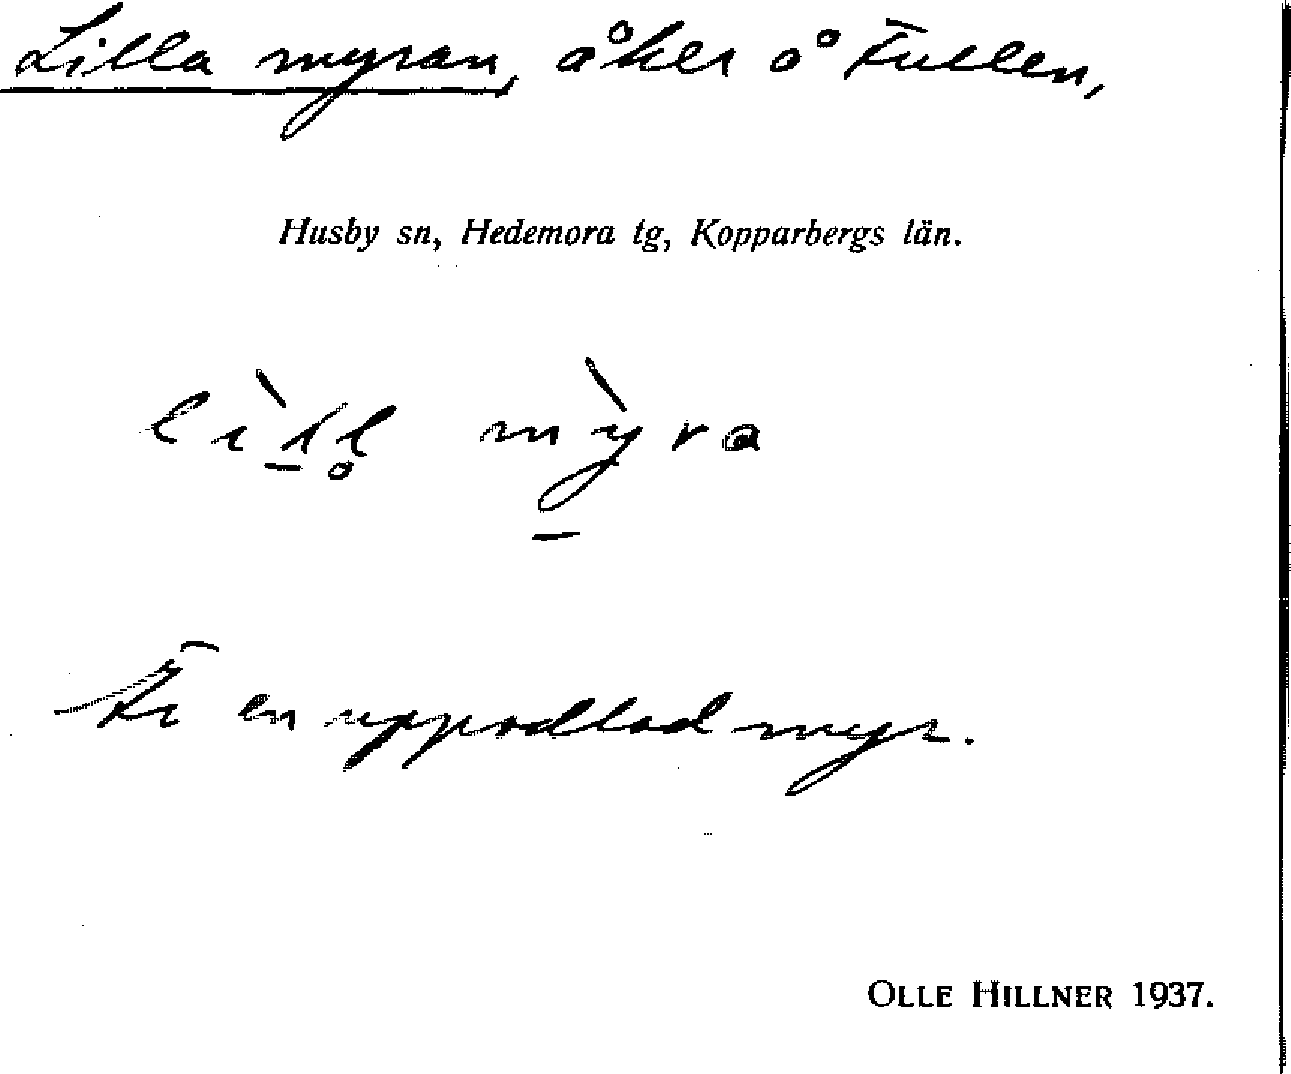 Lilla myran, åker å Fullen,
Husby sn, Hedemora tg, Kopparbergs län.
lìll myra
Är en uppodlad myr.
OLLE HILLNER 1937.